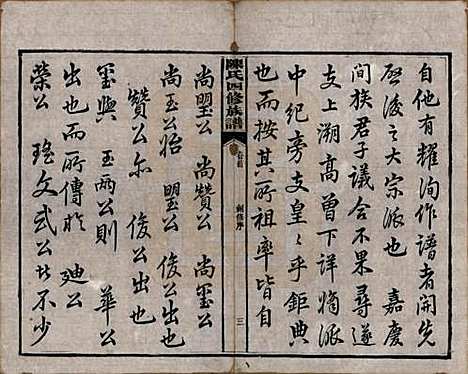 自他有耀洵作譜者開先
啓後之大宗派也　嘉慶
間族君子議合不果尋遂
支上溯高曾下詳嫡派
中紀旁支皇皇乎鉅典
也而按其所祖率皆自
陳氏四修族譜
卷首
創修序
三
尚璺公　尚贊公　尚璽公
尚玉公怡　璺公　俊公出也
贊公亦　俊公出也
璽與　玉兩公則　華公
出也而所傳於　迪公
榮公　瑤文武公皆不少